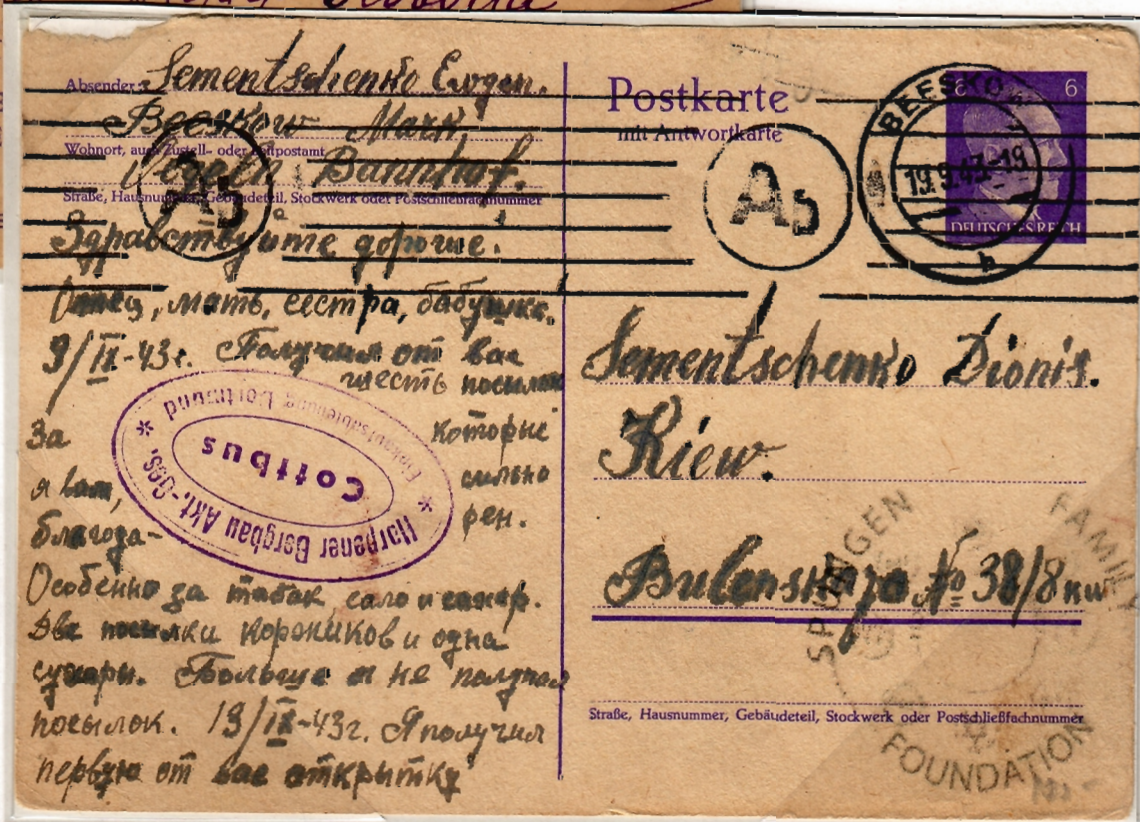 Absender: Sementschenko Ewgen.
Beeskow Mark,
Wohnort, auch Zustell- oder Leitpostamt
Bannhof.
Straße, Hausnummer, Gebäudeteil, Stockwerk oder Postschließfachnummer
A5
Здравствуйте дорогие.
Отец, мать, сестра, бабушка.
9/IX-43г. Получил от вас
шесть посылок
За которые
я вам, сильно
благода- рен.
Особенно за табак, сало и сахар.
Две посылки корочиков и одна
сухари. Больше я не получал
посылок. 19/IX-43г. Я получил
первую от вас открытку
* Harpener Bergbau Akt.-Ges. *
Einkaufsabteilung Dortmund
Cottbus
Postkarte
mit Antwortkarte
A5
BEESKOW
19.9.43.-18
b
6
DEUTSCHES REICH
Sementschenko Dionis.
Kiew.
No 38/8 kw
Straße, Hausnummer, Gebäudeteil, Stockwerk oder Postschließfachnummer
SPUNGEN FAMILY
FOUNDATION